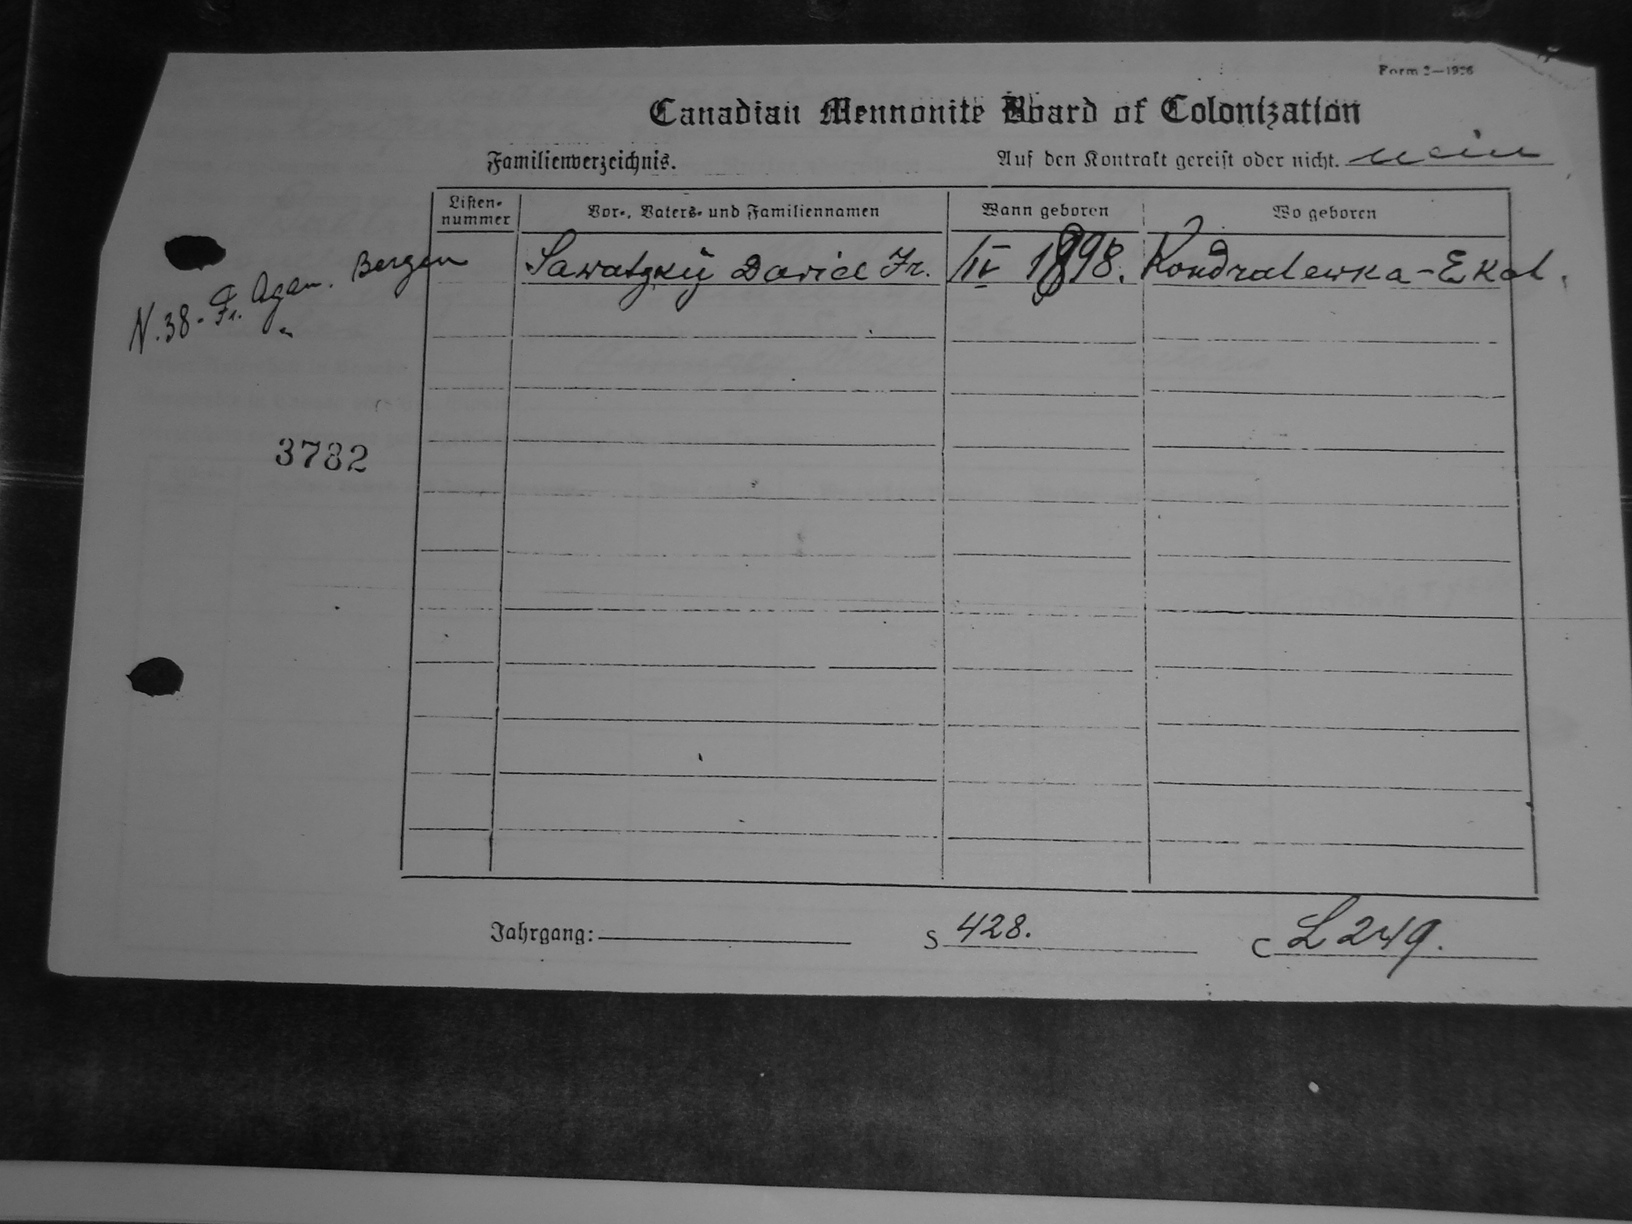 Form 2—1926
Canadian Mennonite Board of Colonization
Familienverzeichnis.
Auf den Kontrakt gereist oder nicht. nein
Listen-
nummer
Vor-, Vaters- und Familiennamen
Wann geboren
Wo geboren
Sawatzky David Fr.
1/IV 1898.
Kondratewka-Ekat.
N.38- Fr. Agan. Bergen
3782
Jahrgang:
S 428.
C L 249.